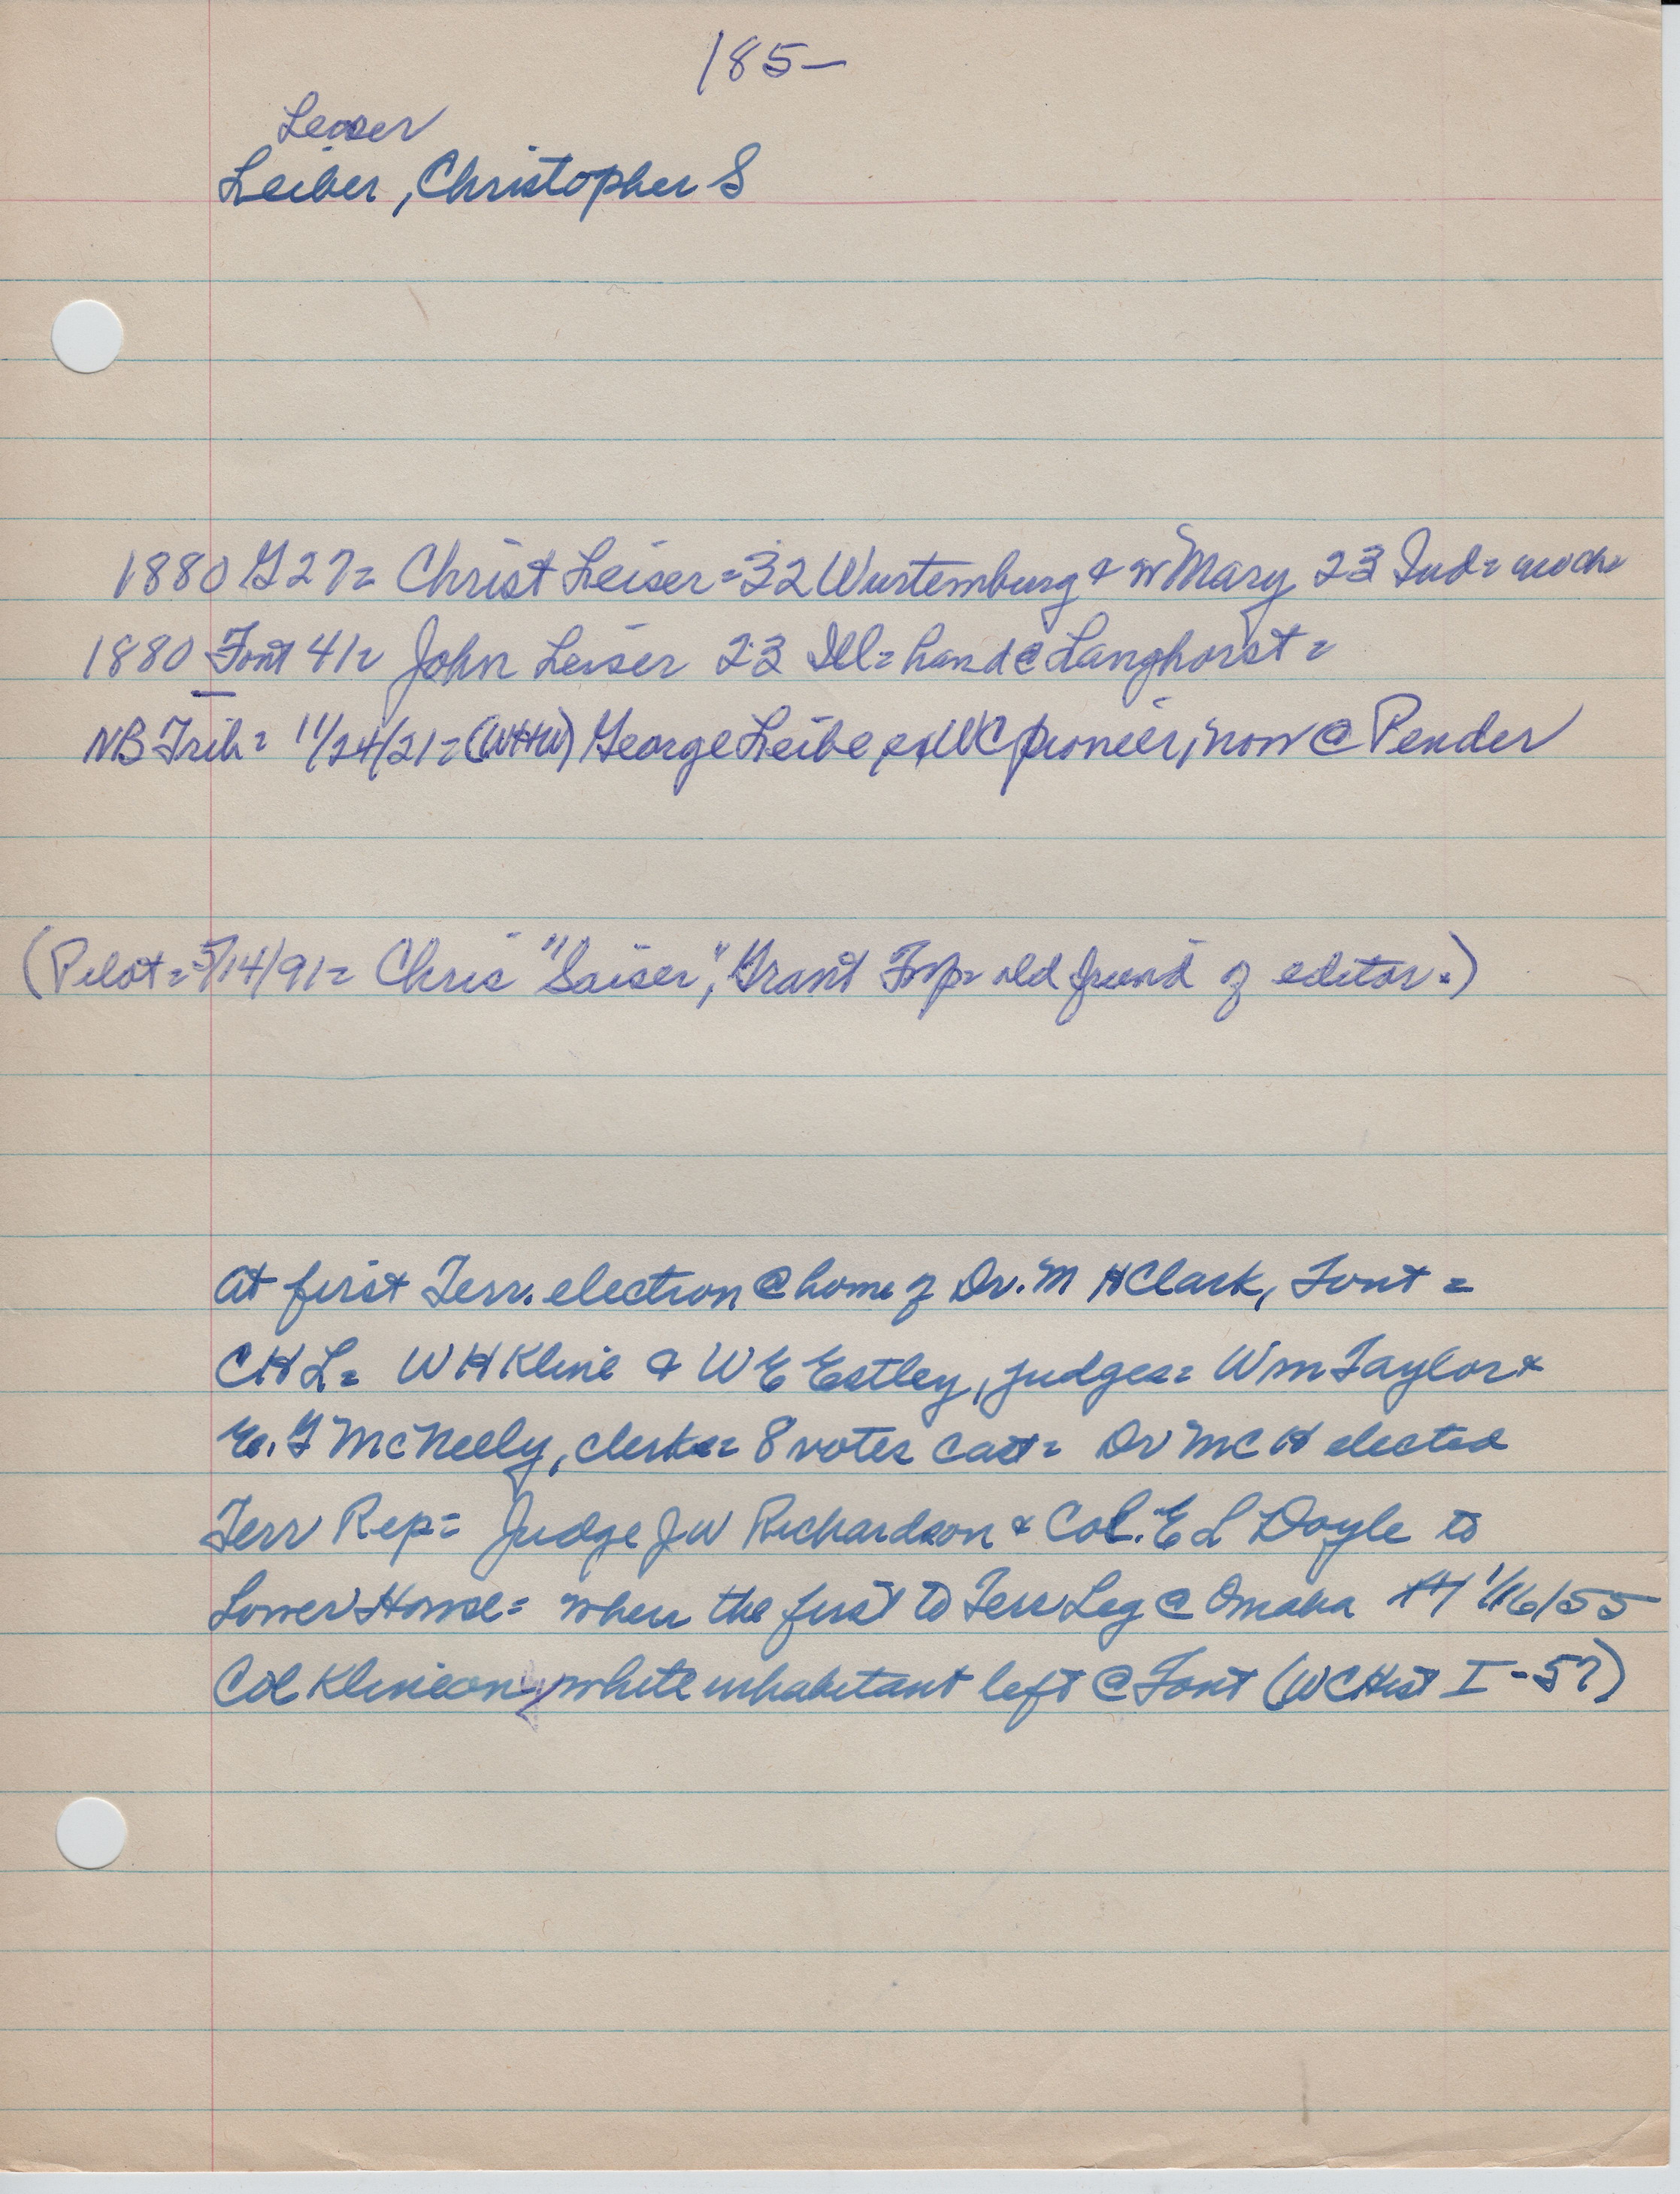 185-
Leiser
Leiber, Christopher S
1880 G27= Christ Leiser=32 Wurtemburg & w Mary 23 Ind=
1880 Font 41= John Leiser 23 Ill= hand @ Langhorst=
NB Trib= 11/24/21=(WHW) George Leibe, exWC pioneer, now @ Pender
(Pilot=5/14/91= Chris "Saiser", Grant Twp= old friend of editor.)
At first Terr. election @ home of Dr. M H Clark, Font=
CHL= W H Kline & W E Estley, judges= Wm Taylor &
E. G McNeely, clerks= 8 votes cast= Dr MCH elected
Terr Rep= Judge J W Richardson & Col. E L Doyle to
Lower House= when the first to Terr Leg @ Omaha 1/16/55
Col Kline only white inhabitant left @ Font (WCHist I-57)